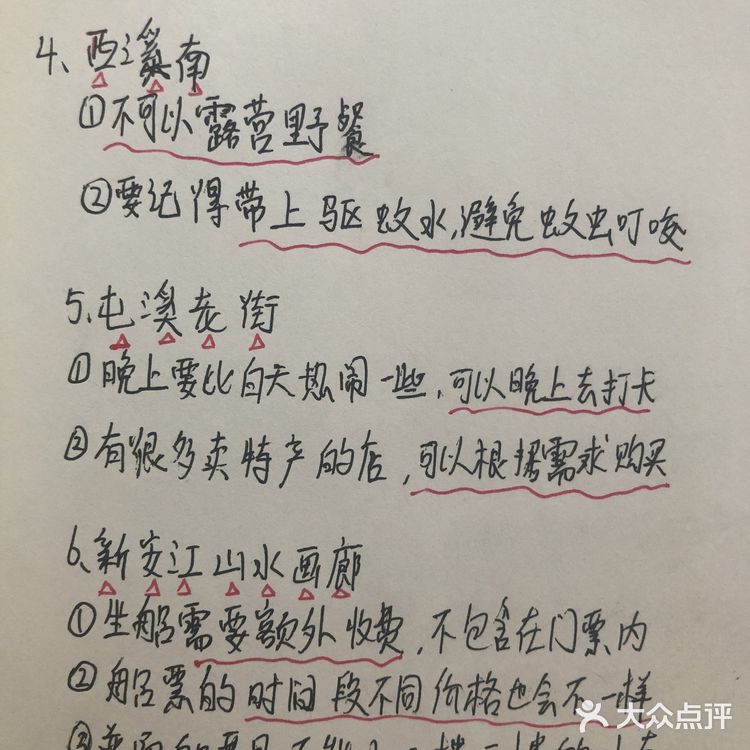 4、西溪南
①不可以露营野餐
②要记得带上驱蚊水,避免蚊虫叮咬
5、屯溪老街
①晚上要比白天热闹一些,可以晚上去打卡
②有很多卖特产的店,可以根据需求购买
6、新安江山水画廊
①坐船需要额外收费,不包含在门票内
②船票的时间段不同价格也会不一样
大众点评